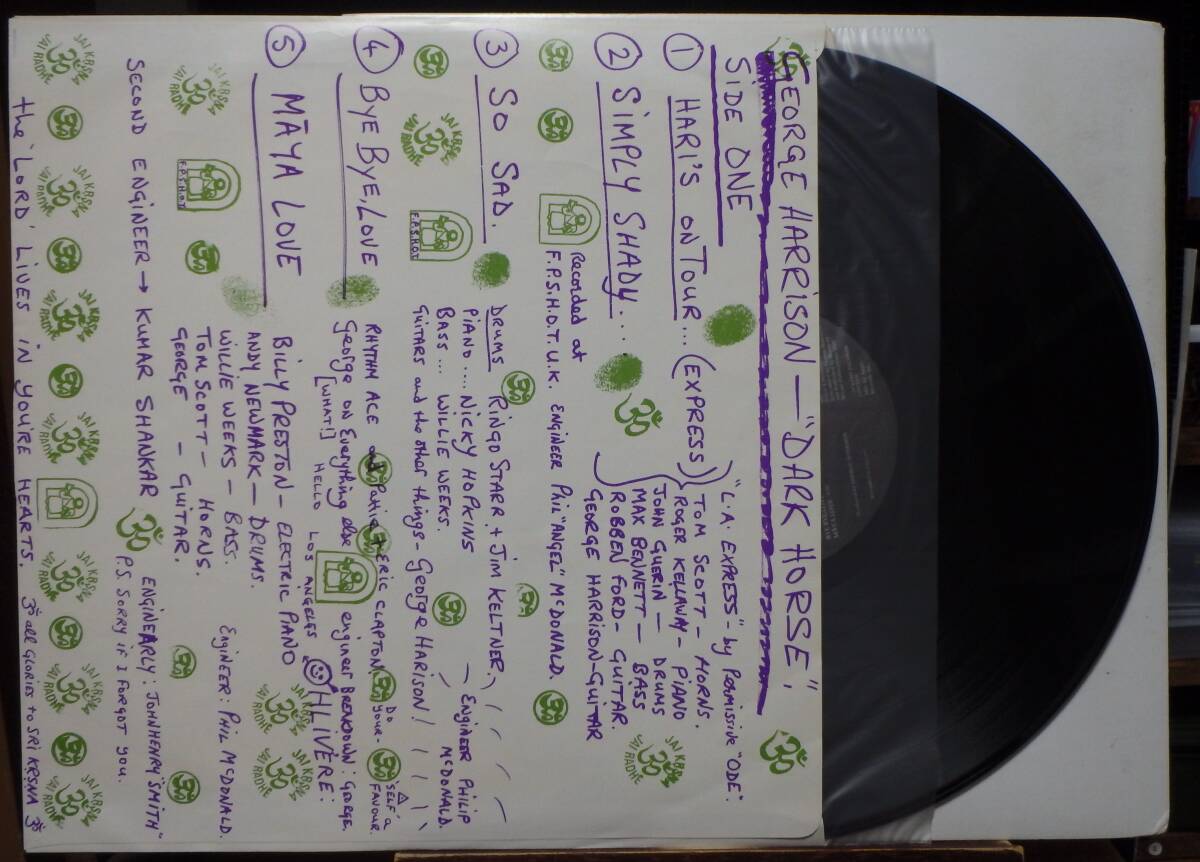 GEORGE HARRISON — "DARK HORSE".
SIDE ONE
① HARI'S ON TOUR... (EXPRESS)
"L.A. EXPRESS" - by Permissive "ODE".
TOM SCOTT - HORNS.
ROGER KELLAWAY - PIANO
JOHN GUERIN — DRUMS
MAX BENNETT — BASS
ROBBEN FORD - GUITAR.
GEORGE HARRISON - GUITAR
② SIMPLY SHADY...
Recorded at
F.P.S.H.O.T. U.K. ENGINEER PHIL "ANGEL" McDONALD.
③ SO SAD.
DRUMS RINGO STARR + JIM KELTNER.
PIANO .... NICKY HOPKINS
BASS ... WILLIE WEEKS.
GUITARS and the other things - GEORGE HARISON!
ENGINEER PHILIP
McDONALD.
④ BYE BYE, LOVE
RHYTHM ACE and Pattie + ERIC CLAPTON
George on Everything else
[WHAT!]
engineer
GEORGE.
DO
YOUR-
"SELF" a
FAVOUR.
HELLO LOS ANGELES
OHLIVERE:
⑤ MĀYA LOVE
BILLY PRESTON - ELECTRIC PIANO
ANDY NEWMARK — DRUMS.
WILLIE WEEKS - BASS.
TOM SCOTT - HORNS.
GEORGE - GUITAR.
ENGINEER: PHIL McDONALD.
SECOND ENGINEER → KUMAR SHANKAR ॐ ENGINEARLY: JOHNHENRY "SMITH"
P.S. SORRY IF I FORGOT YOU.
JAI KRSNA
JAI RADHE
F.P.S.H.O.T
the 'LORD' LIVES IN YOU'RE HEARTS. ॐ all GLORIES to SRI KRSNA ॐ